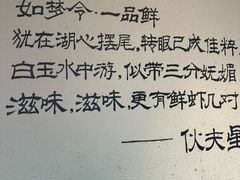 如梦令·一品鲜
犹在湖心摆尾，转眼已成佳粹，
白玉水中游，似带三分妩媚
滋味，滋味，更有鲜虾几对
——伙夫星